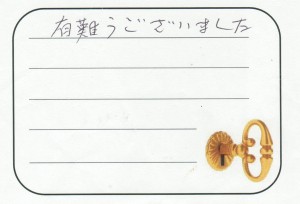 有難うございました